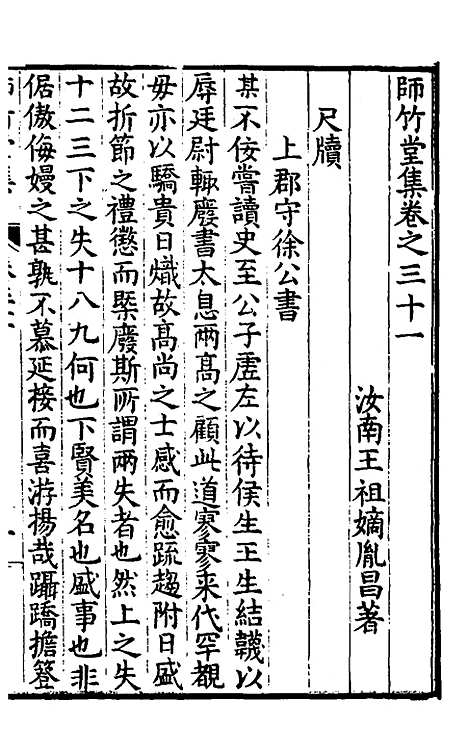 師竹堂集卷之三十一
汝南王祖嫡胤昌著
尺牘
上郡守徐公書
某不佞嘗讀史至公子虛左以待侯生王生結韤以
辱廷尉輒廢書太息兩高之顧此道寥寥來代罕覩
毋亦以驕貴日熾故高尚之士感而愈疏趨附日盛
故折節之禮懲而槩廢斯所謂兩失者也然上之失
十二三下之失十八九何也下賢美名也盛事也非
倨傲侮嫚之甚孰不慕延接而喜游揚哉躡蹻擔簦